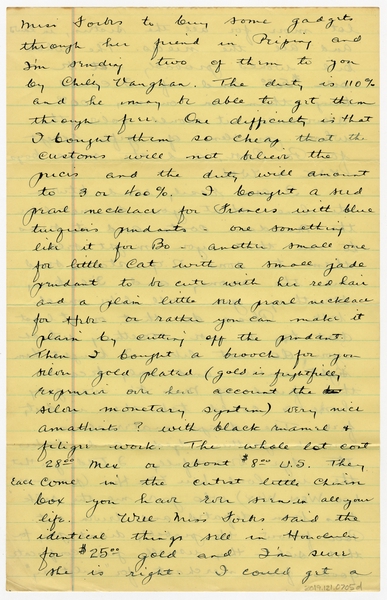 Miss Forbs to buy some gadgets
through her friend in Peiping and
I'm sending two of them to you
by Chilly Vaughan. The duty is 110%
and he may be able to get them
through free. One difficulty is that
I bought them so cheap that the
customs will not believe the
prices and the duty will amount
to 3 or 400%. I bought a seed
pearl necklace for Frances with blue
turquois pendants - one something
like it for Bo - another small one
for little Cat with a small jade
pendant to be cute with her red hair
and a plain little seed pearl necklace
for - or rather you can make it
plain by cutting off the pendant.
Then I bought a brooch for you
silver gold plated (gold is frightfully
expensive over here account the
silver monetary system) very nice
amathists? with black enamel &
filigre work. The whole lot cost
28.00 Mex or about $8.00 U.S. They
Each come in the cutest little Chinese
box you have ever seen in all your
life. Well Miss Forbs said the
identical things sell in Honolulu
for $25.00 gold and I'm sure
she is right. I could get a
2019.121.0705d